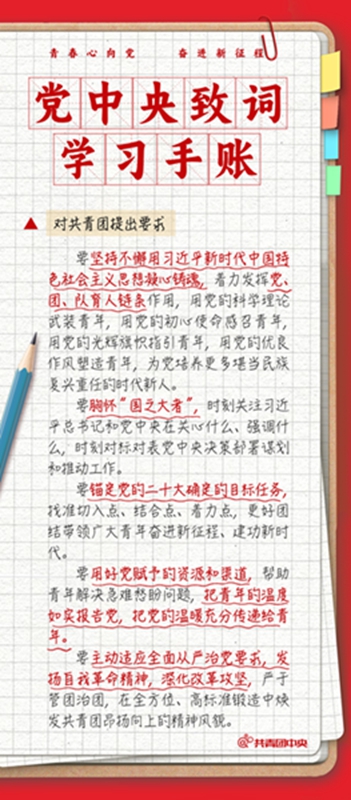 青春心向党 奋进新征程
党中央致词
学习手账
对共青团提出要求
要坚持不懈用习近平新时代中国特
色社会主义思想凝心铸魂，着力发挥党、
团、队育人链条作用，用党的科学理论
武装青年，用党的初心使命感召青年，
用党的光辉旗帜指引青年，用党的优良
作风塑造青年，为党培养更多堪当民族
复兴重任的时代新人。
要胸怀“国之大者”，时刻关注习近
平总书记和党中央在关心什么、强调什
么，时刻对标对表党中央决策部署谋划
和推动工作。
要锚定党的二十大确定的目标任务，
找准切入点、结合点、着力点，更好团
结带领广大青年奋进新征程、建功新时
代。
要用好党赋予的资源和渠道，帮助
青年解决急难愁盼问题，把青年的温度
如实报告党，把党的温暖充分传递给青
年。
要主动适应全面从严治党要求，发
扬自我革命精神，深化改革攻坚，严于
管团治团，在全方位、高标准锻造中焕
发共青团昂扬向上的精神风貌。
@共青团中央